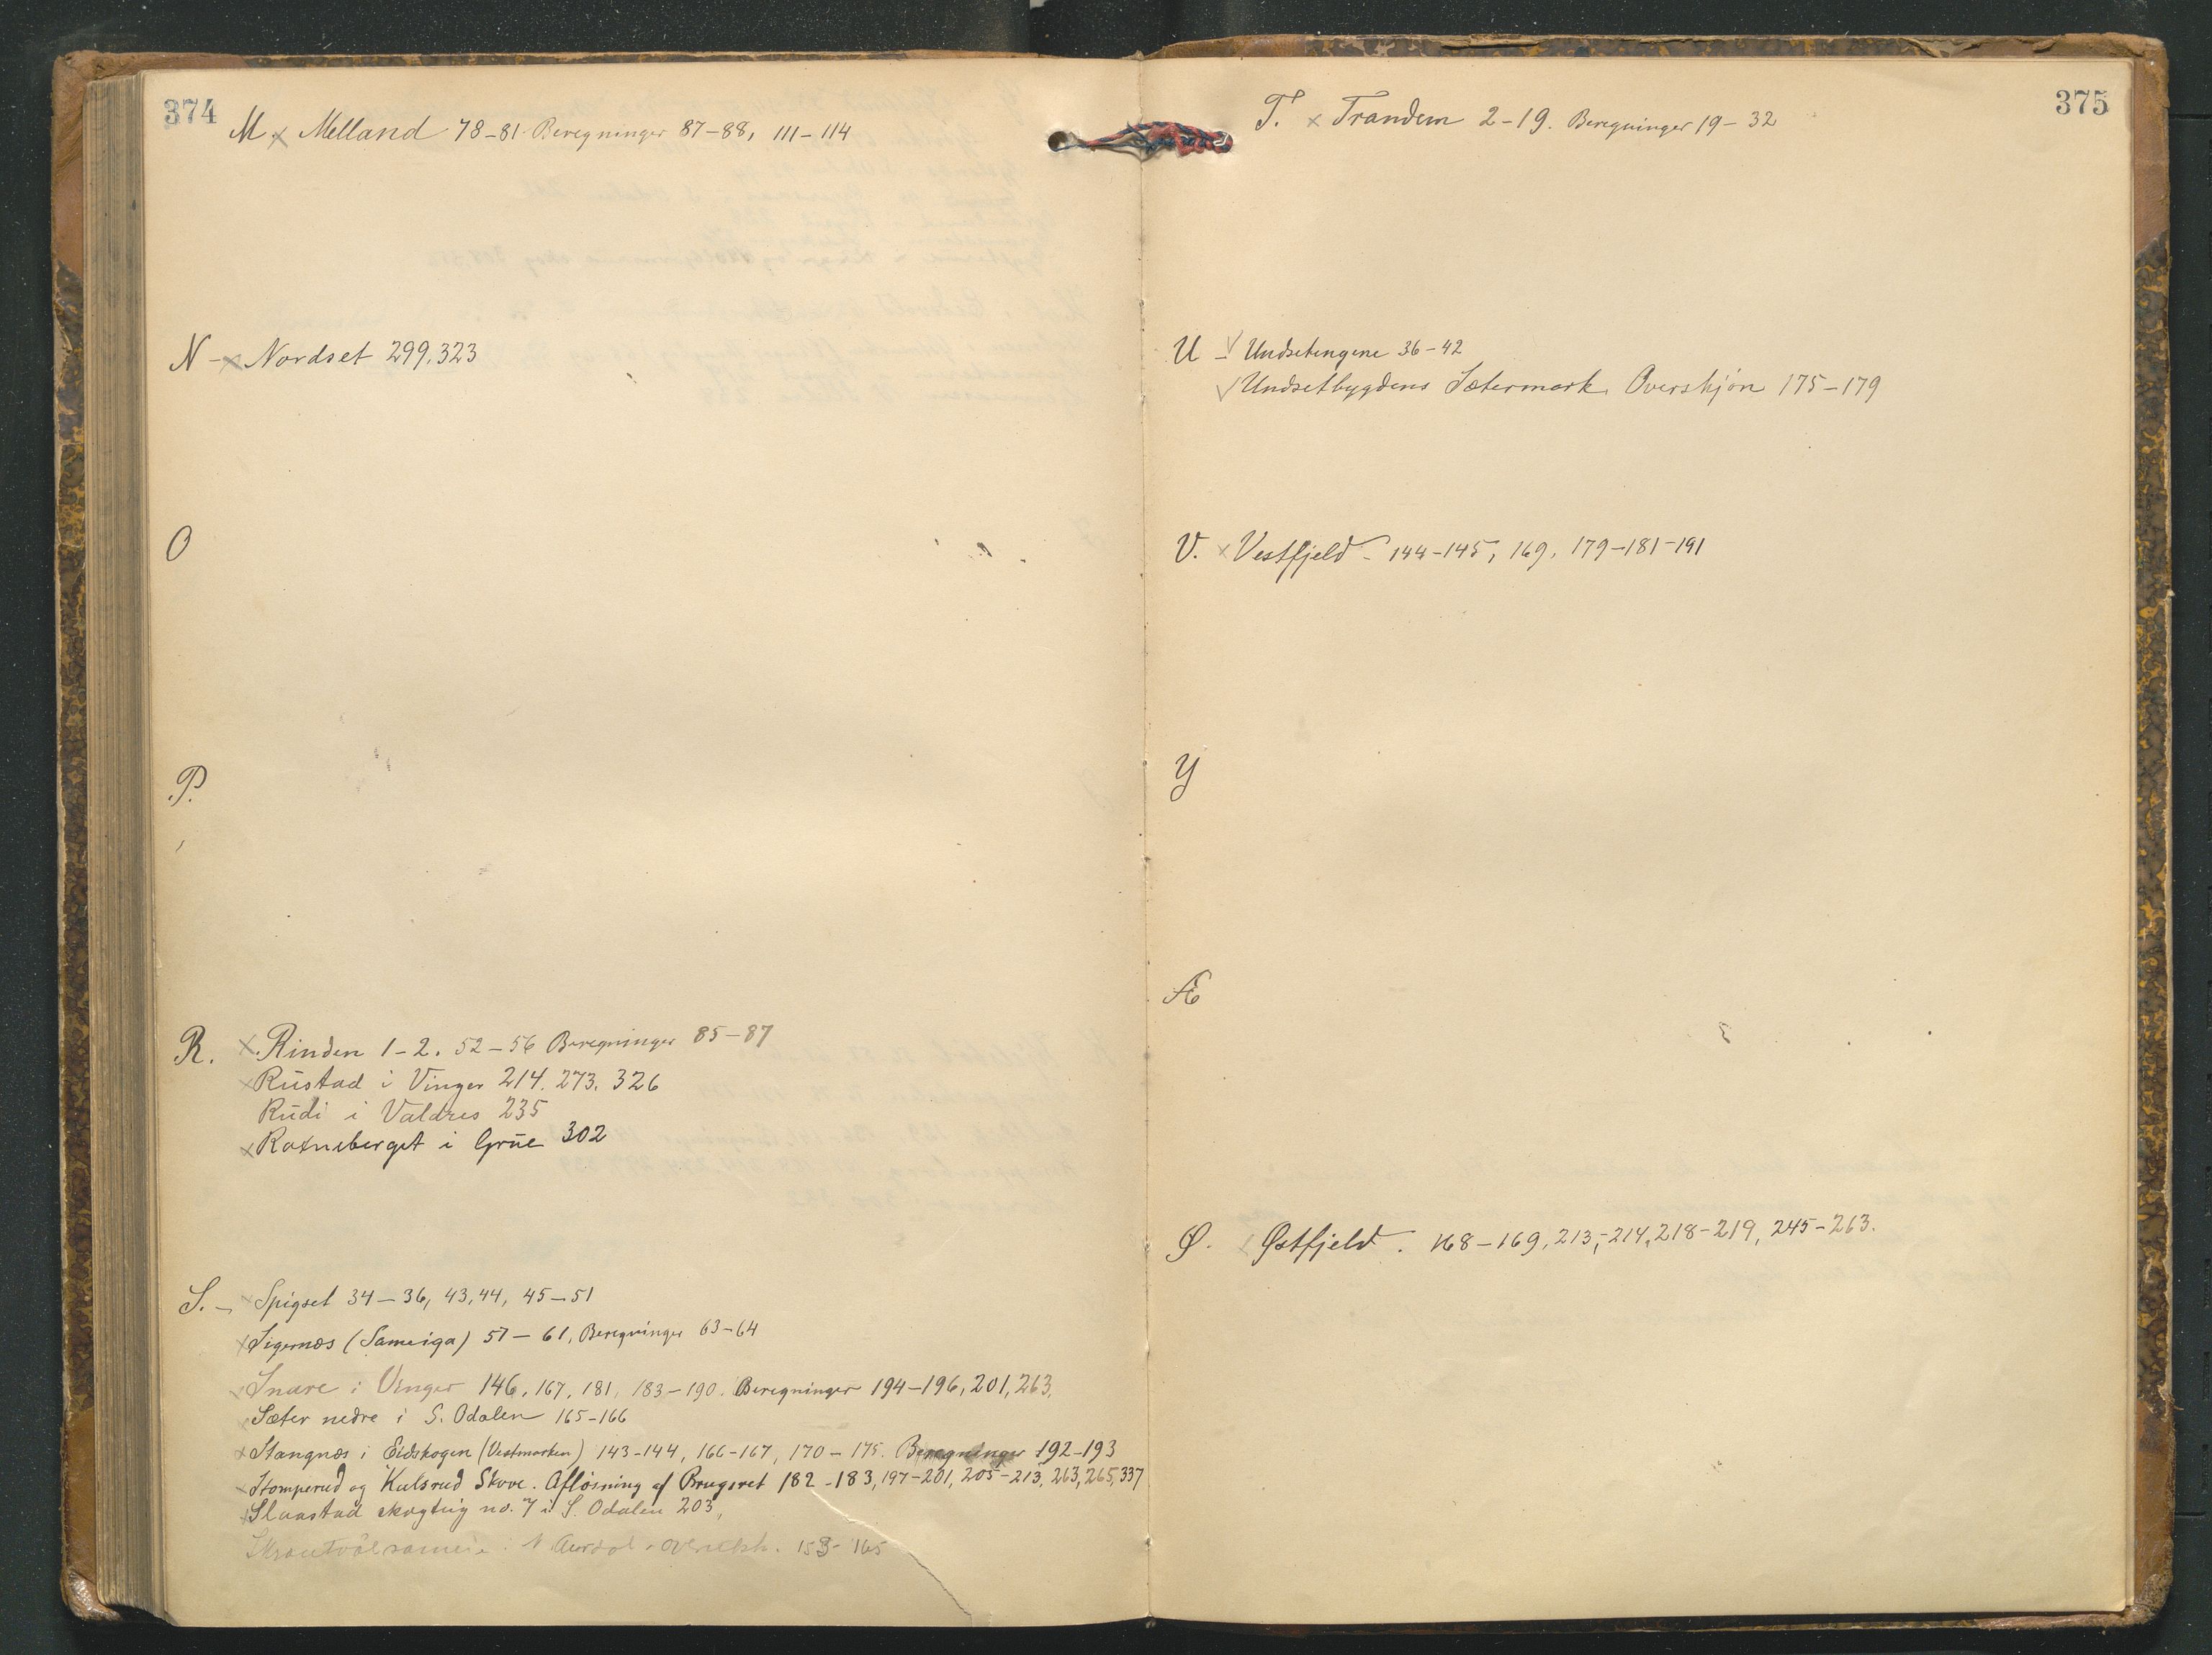 374
M. x Melland 78-81 Beregninger 87-88, 111-114
N - x Nordset 299, 323
O
P.
R. x Rinden 1-2. 52-56 Beregninger 85-87
x Rustad i Vinger 214. 273. 326
Rudi i Valdres 235
x Rotneberget i Grue 302
S. - x Spigset 34-36, 43, 44, 45-51
x Sigernæs (Sameiga) 57-61, Beregninger 63-64
x Snare i Vinger 146, 167, 181, 183-190. Beregninger 194-196, 201, 263,
Sæter nedre i S. Odalen 165-166
x Stangnæs i Eidskogen (Vestmarken) 143-144, 166-167, 170-175. Beregninger 192-193
x Stomperud og Kulsrud Skove. Afløsning af Brugsret 182-183, 197-201, 205-213, 263, 265, 337
x Slaastad skogteig no. 7 i S. Odalen 203,
i N. Aurdal 153-165
375
T. x Trandem 2-19. Beregninger 19-32
U - √ Undsetengene 36-42
√ Undsetbygdens Sætermark, Overskjøn 175-179
V. x Vestfjeld - 144-145, 169, 179-181-191
Y
Æ
Ø. Østfjeld. 168-169, 213,-214, 218-219, 245-263.